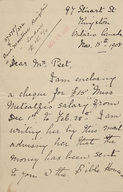 97 Stuart St
Kingston
Ontario Canada
Nov. 15th 1908
Dear Mr. Peet,
I am enclosing
a cheque for Miss
Metcalf's salary from
Dec 1st to Feb. 28th. I am
writing her by this mail
advising her that the
money has been sent
to you in the Bible House